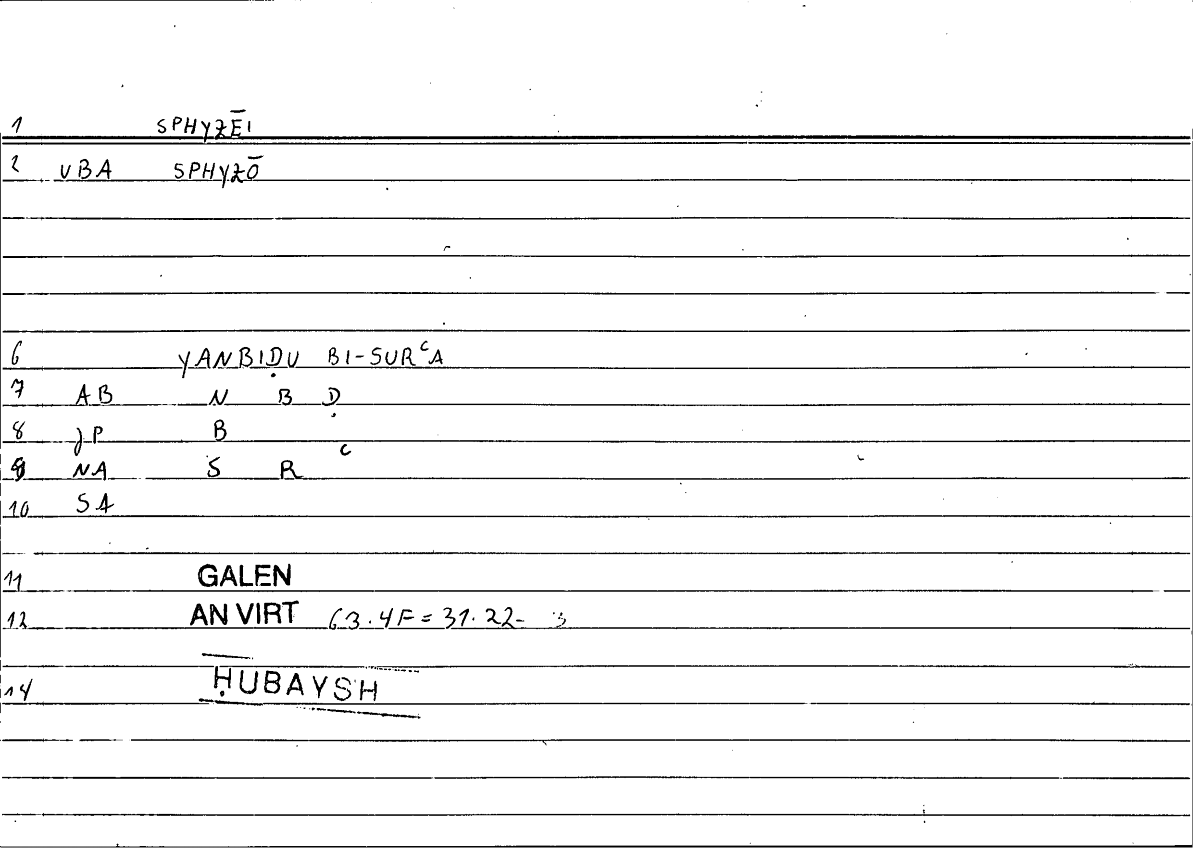 1 SPHYZĒI
2 VBA SPHYZŌ
6 YANBIḌU BI-SURᶜA
7 AB N B Ḍ
8 JP B
9 NA S R ᶜ
10 SA
11 GALEN
12 AN VIRT 63.4F = 31.22-3
14 ḤUBAYSH